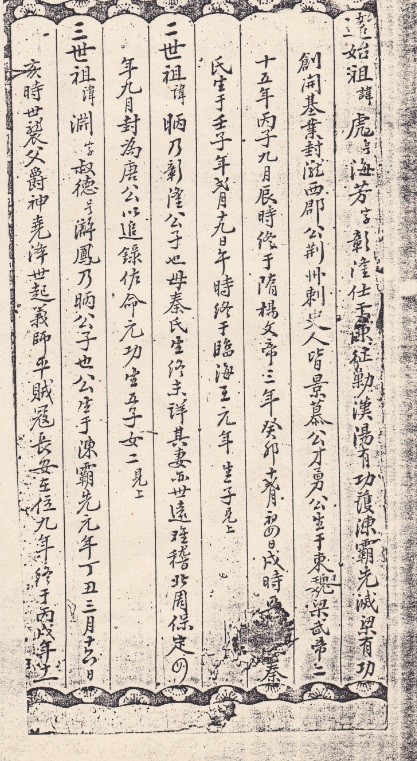 始祖諱虎号海芳字彰隆仕于陳征勒漢湯有功護陳霸先滅梁有功
創開基業封隴西郡公荆州刺史人皆景慕公才勇公生于東魏梁武帝二
十五年丙子九月辰時終于隋楊文帝三年癸卯十二月初四日戌時 秦
氏生于壬子年弍月十九日午時終于臨海王元年生子見上
二世祖諱昞乃彰隆公子也母秦氏生終未詳其妻亦世遠难稽北周保定四
年九月封為唐公以追錄佐命元功生五子女二見上
三世祖諱淵字叔德号游鳳乃昞公子也公生于陳霸先元年丁丑三月十六日
亥時世襲父爵神堯湋世起義師平賊冦長安在位九年終于丙戌年十一